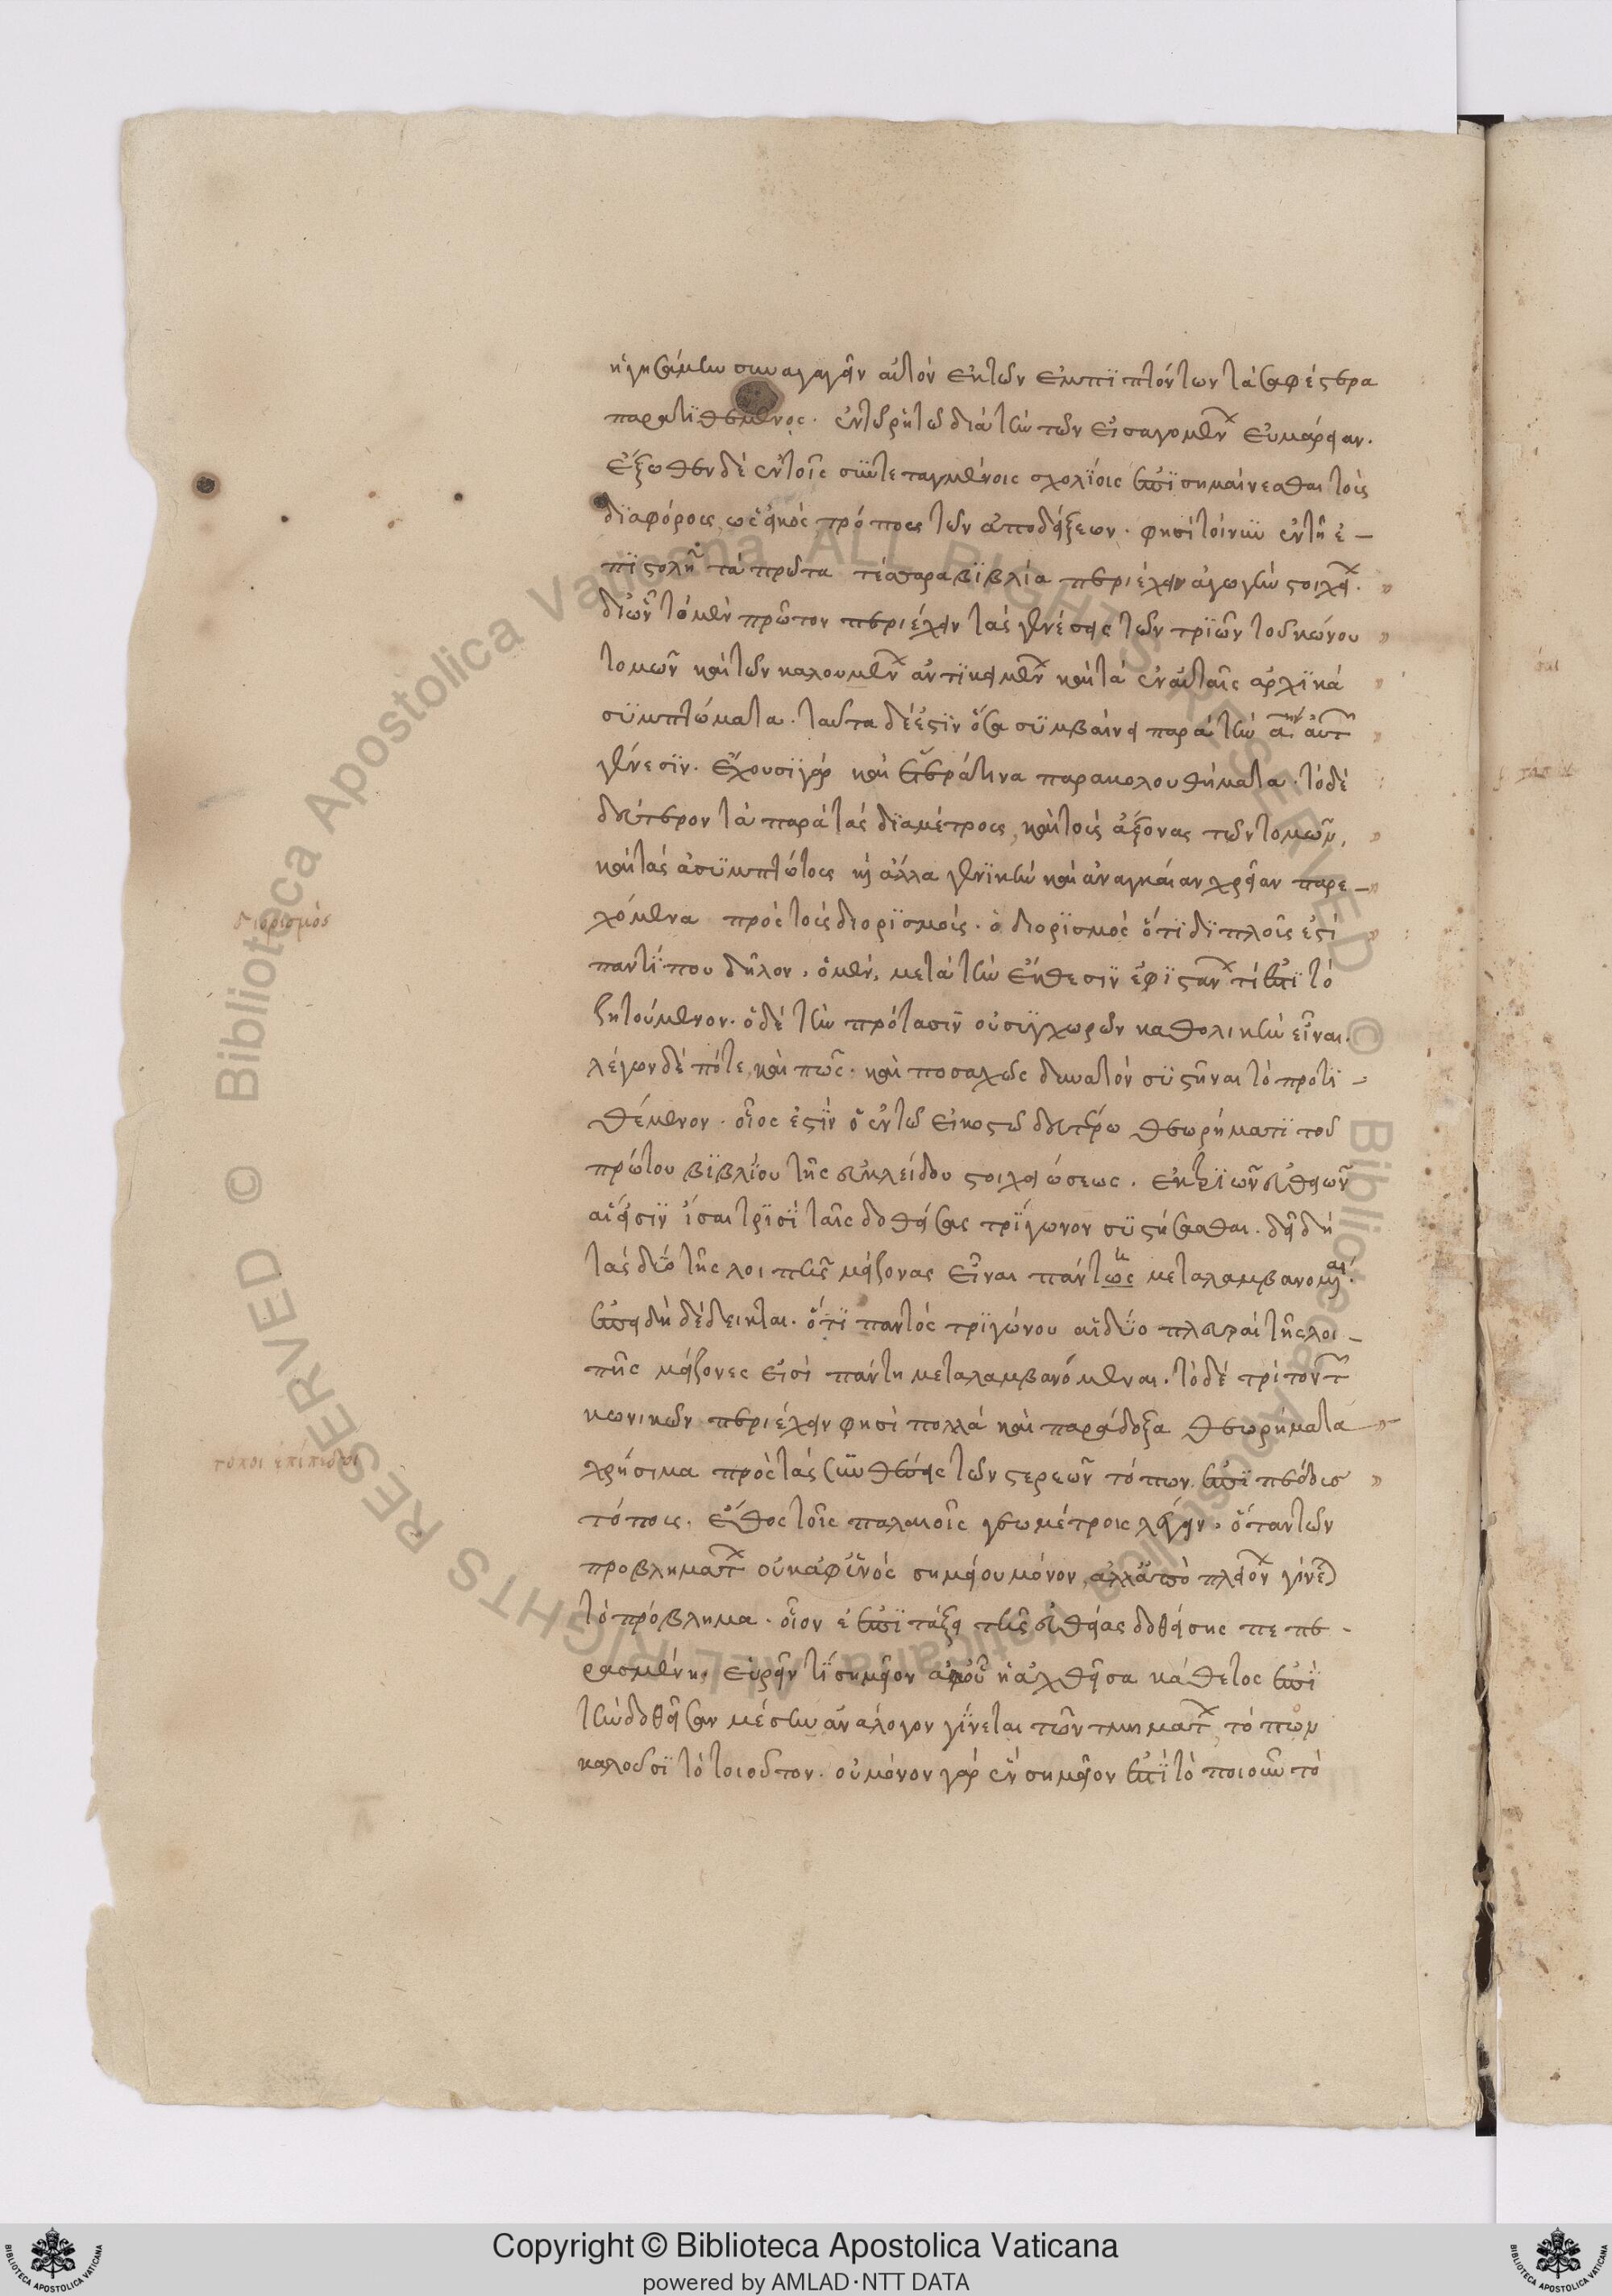 ἡγησάμην συναγαγεῖν αὐτὸν ἐκ τῶν ἐμπιπτόντων τὰ σαφέστερα
παρατιθέμενος· ἐν τῷ ῥητῷ διὰ τὴν τῶν εἰσαγομένων εὐμάρειαν·
ἔξωθεν δὲ ἐν τοῖς συντεταγμένοις σχολίοις ἐπισημαίνεσθαι τοὺς
διαφόρους ὡς εἰκὸς τρόπους τῶν ἀποδείξεων· φησὶ τοίνυν ἐν τῇ ἐ–
πιστολῇ τὰ πρῶτα τέσσαρα βιβλία περιέχειν ἀγωγὴν στοιχει
δι ὧν τὸ μὲν πρῶτον περιέχειν τὰς γενέσεις τῶν τριῶν τοῦ κώνου
τομῶν καὶ τῶν καλουμένων ἀντικειμένων καὶ τὰ ἐν αὐταῖς ἀρχικὰ
συμπτώματα· ταῦτα δέ ἐστιν ὅσα συμβαίνει παρὰ τὴν αην αὐτ
γένεσιν· ἔχουσι γὰρ καὶ ἕτερά τινα παρακολουθήματα· τὸ δὲ
δεύτερον τὰ παρὰ τὰς διαμέτρους, καὶ τοὺς ἄξονας τῶν τομῶν,
καὶ τὰς ἀσυμπτώτους καὶ ἄλλα γενικὴν καὶ ἀναγκαίαν χρείαν παρε–
χόμενα πρὸς τοὺς διορισμούς· ὁ διορισμὸς ὅτι διπλοῦς ἐστὶ
διορισμὸς
παντί που δῆλον· ὁ μὲν, μετὰ τὴν ἔκθεσιν ἐφιστάνων τί ἐστι τὸ
ζητούμενον· ὁ δὲ τὴν πρότασιν οὐ συγχωρῶν καθολικὴν εἶναι·
λέγων δὲ πότε, καὶ πῶς· καὶ ποσαχῶς δυνατὸν συστῆναι τὸ προτι–
θέμενον· οἷός ἐστιν ὁ ἐν τῷ εἰκοστῷ δευτέρω θεωρήματι τοῦ
πρώτου βιβλίου τῆς εὐκλείδου στοιχειώσεως· ἐκ τριῶν εὐθειῶν
αἵ εἰσιν ἴσαι τρισὶ ταῖς δοθείσαις τρίγωνον συστήσασθαι· δεῖ δὴ
τὰς δύο τῆς λοιπῆς μείζονας εἶναι πάντως μεταλαμβανομ
ἐπειδὴ δέδεικται· ὅτι παντὸς τριγώνου αἱ δύο πλευραὶ τῆς λοι–
πῆς μείζονές εἰσι πάντη μεταλαμβανόμεναι· τὸ δὲ τρίτον τ
κωνικῶν περιέχειν φησὶ πολλὰ καὶ παράδοξα θεωρήματα
χρήσιμα πρὸς τὰς συνθέσεις τῶν στερεῶν τόπων· ἐπιπέδους
τόποι ἐπίπεδοι
τόπους· ἔθος τοῖς παλαιοῖς γεωμέτραις λέγειν· ὅταν τῶν
προβλημάτων οὐκ ἀφ ἑνὸς σημείου μόνον, ἀλλ ἀπὸ πλειόνων γίνεται
τὸ πρόβλημα· οἷον ἐ ἐπιτάξει τῆς εὐθείας δοθείσης πεπε–
ρασμένης εὑρεῖν τι σημεῖον ἀφ οὗ ἡ ἀχθεῖσα κάθετος ἐπὶ
τὴν δοθεῖσαν μέση ἀνάλογον γίνεται τῶν τμημάτων, τόπον
καλοῦσι τὸ τοιοῦτον· οὐ μόνον γὰρ ἓν σημεῖόν ἐστι τὸ ποιοῦν τὸ